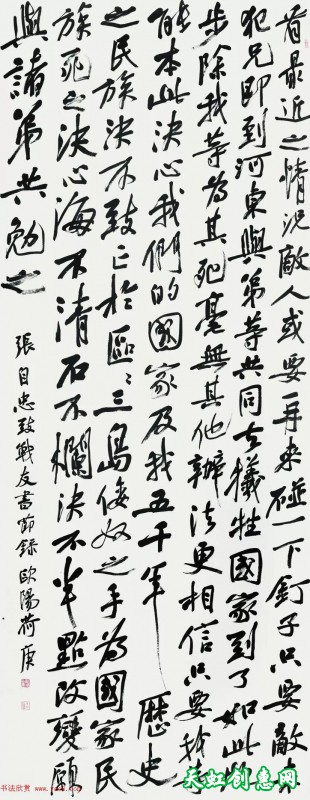 看最近之情况敌人或要再来碰一下钉子只要敌来
犯兄即到河东與弟等共同去牺牲國家到了如此地
步除我等为其死毫無其他辦法更相信只要我等
能本此决心我們的國家及我五千年歷史
之民族决不致亡於區區三島倭奴之手为國家民
族死之决心海不清石不爛决不半點改變願
與諸弟共勉之
張自忠致戰友書節錄 歐陽荷庚
书法欣赏
天虹创惠网